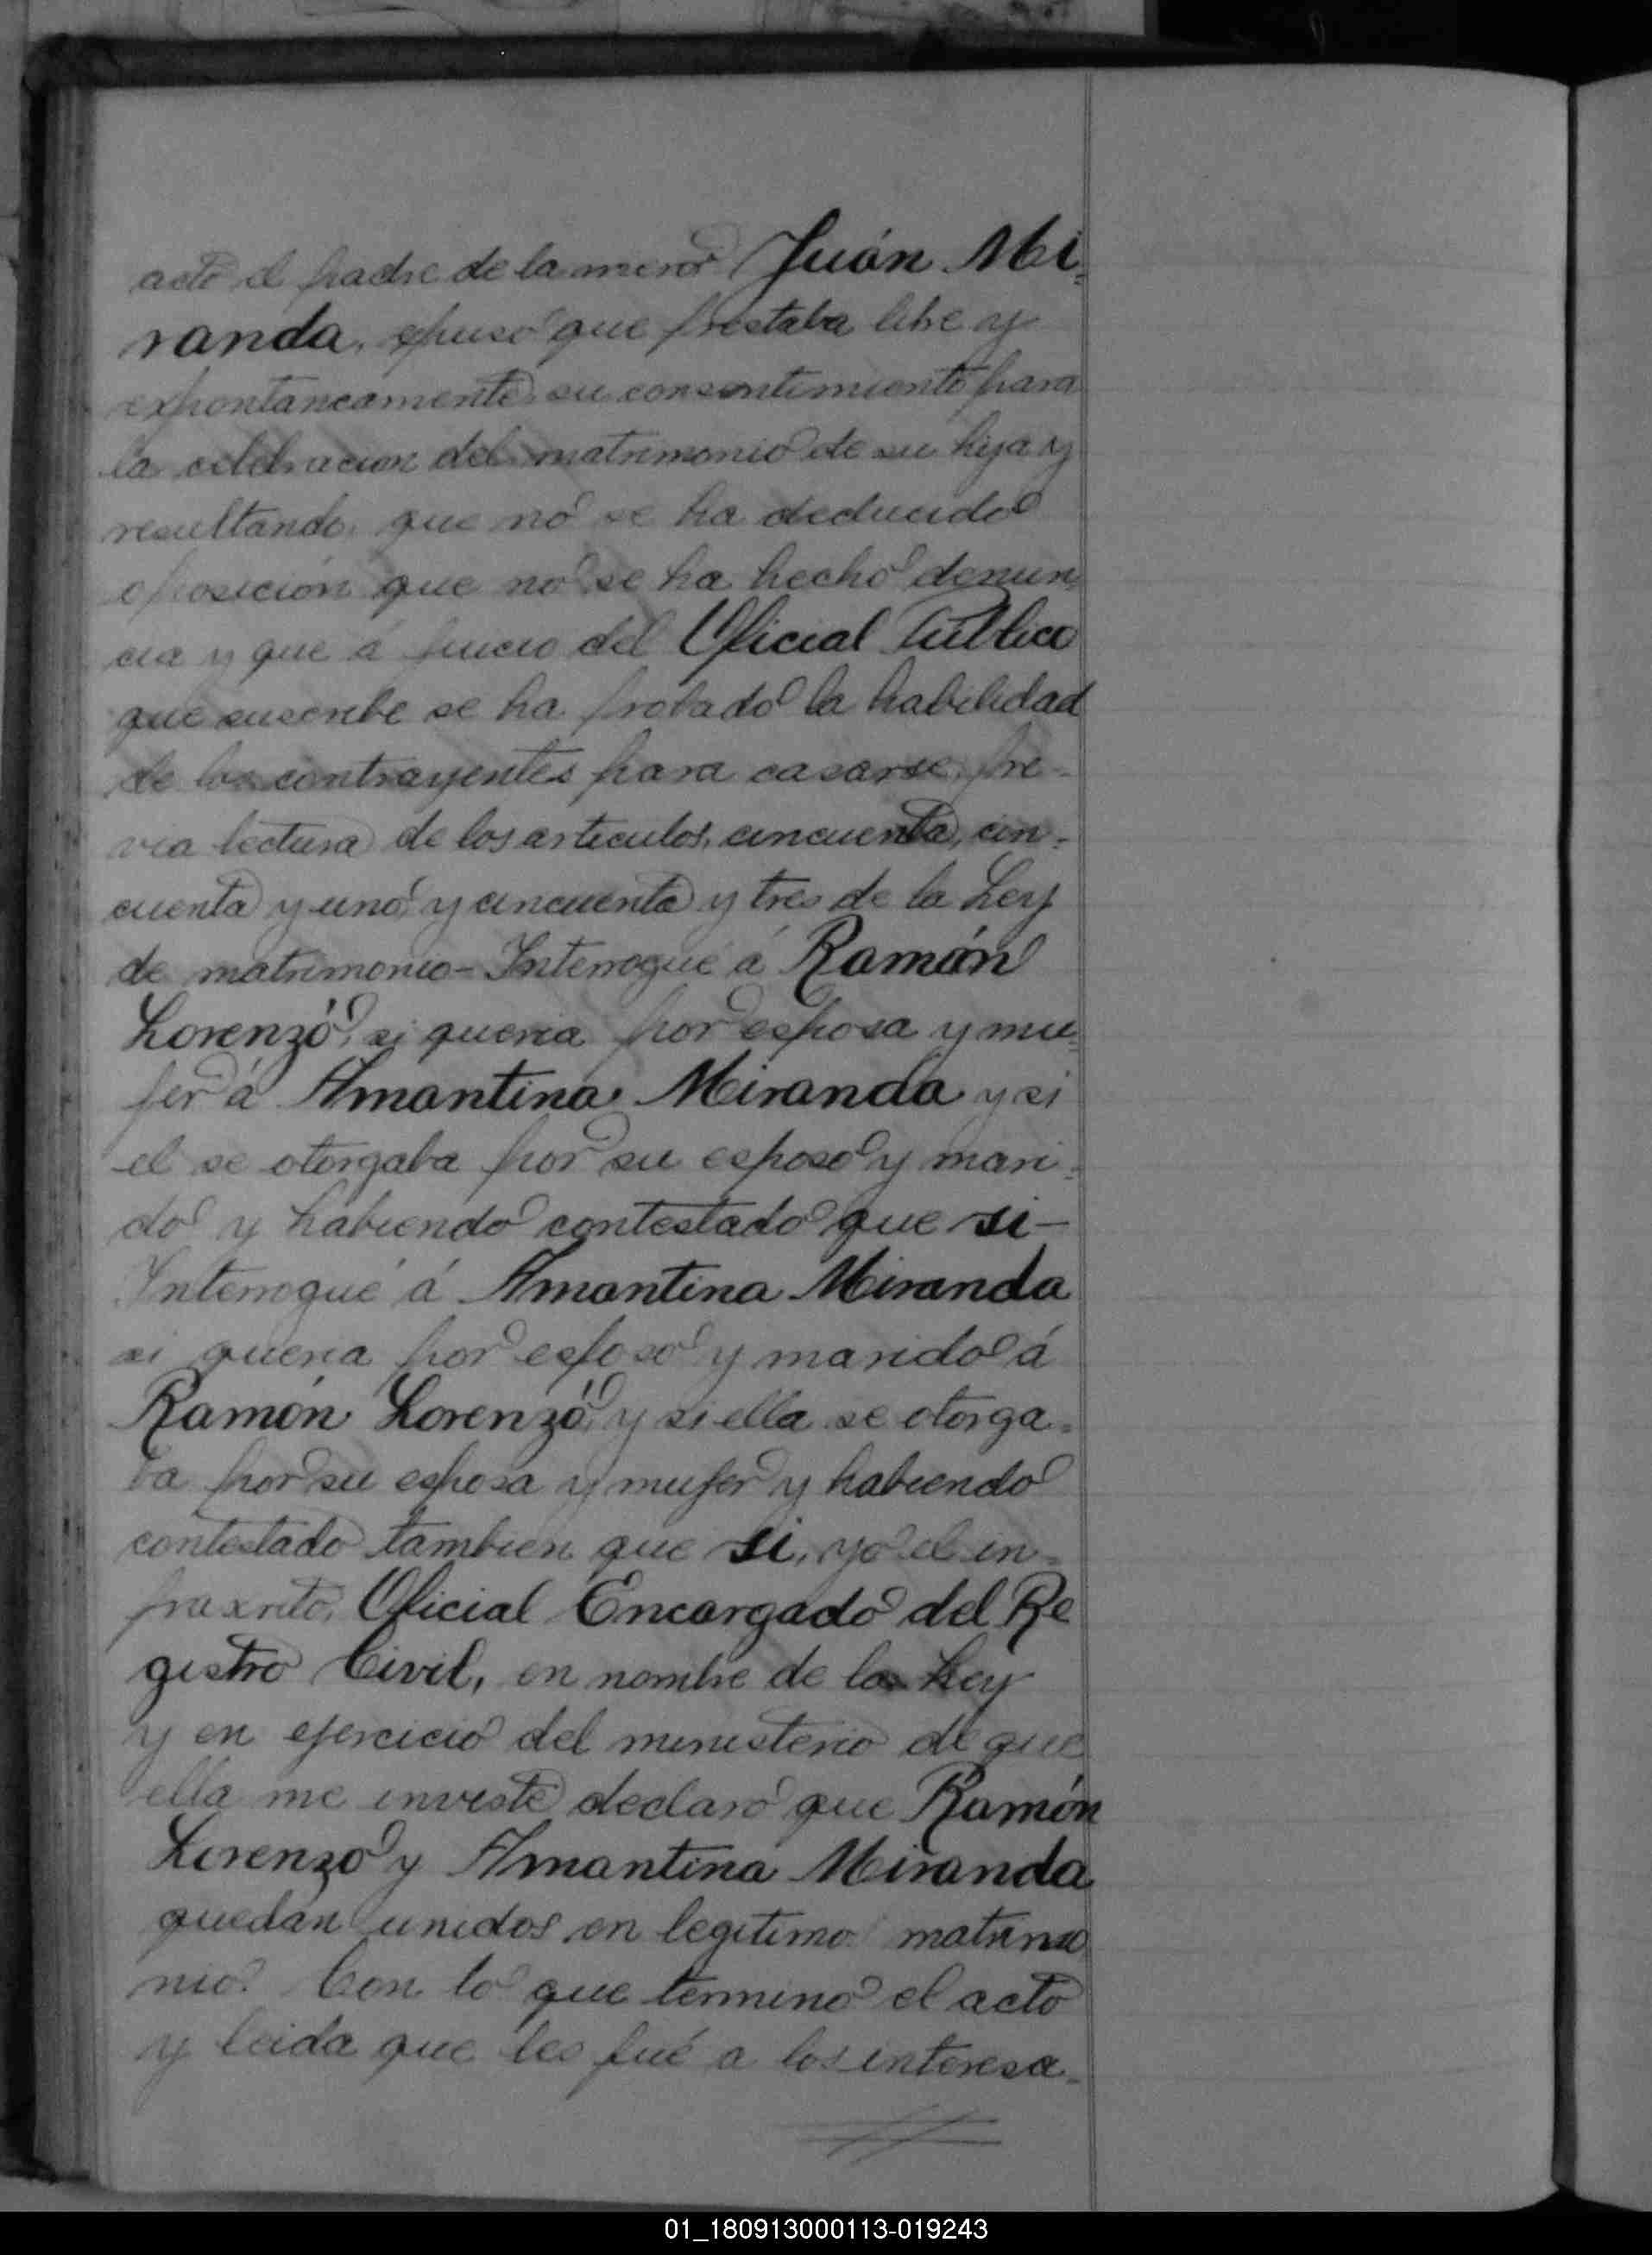 acto el padre de la menor Juán Mi-
randa, expuso que prestaba libre y
expontaneamente su consentimiento para
la celebracion del matrimonio de su hija y
resultando que no se ha deducido
oposición que no se ha hecho denun-
cia y que á juicio del Oficial Público
que suscribe se ha probado la habilidad
de los contrayentes para casarse, pre-
via lectura de los articulos, cincuenta, cin-
cuenta y uno y cincuenta y tres de la Ley
de matrimonio - Interrogué á Ramón
Lorenzo, si queria por esposa y mu-
jer á Amantina Miranda y si
el se otorgaba por su esposo y mari-
do y habiendo contestado que si -
Interrogué á Amantina Miranda
si queria por esposo y marido á
Ramón Lorenzo, y si ella se otorga-
ba por su esposa y mujer y habiendo
contestado tambien que si, yo el in-
frascrito, Oficial Encargado del Re
gistro Civil, en nombre de la Ley
y en ejercicio del ministerio de que
ella me inviste declaro que Ramón
Lorenzo y Amantina Miranda
quedan unidos en legitimo matrimo
nio. Con lo que terminó el acto
y leida que les fué a los interesa-
01_180913000113-019243